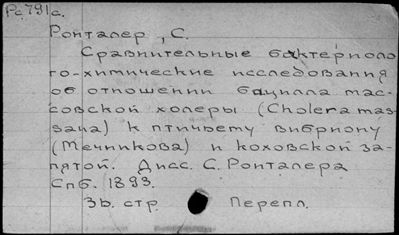 Рс791с.
Ронталер, С.
Сравнительные бактериоло
го-химические исследования
об отношении бацилла мас-
совской холеры (Cholera mas
saua) к птичьему вибриону
(Мечникова) и коховской за-
пятой. Дисс. С. Ронталера
Спб. 1893.
36. стр Перепл.